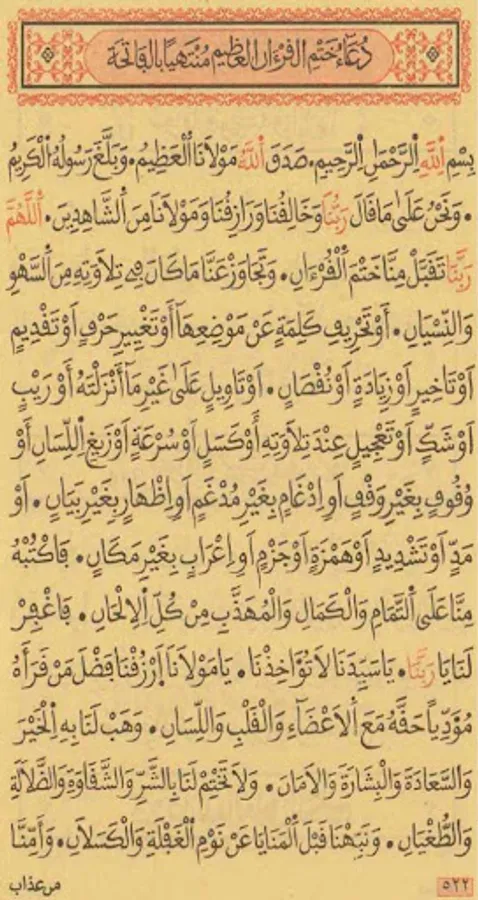 دُعَآءُ خَتْمِ الْقُرْءَانِ الْعَظِيمِ مُنْتَهِياً بِالْفَاتِحَة
بِسْمِ اِ۬للَّهِ اِ۬لرَّحْمَٰنِ اِ۬لرَّحِيمِ. صَدَقَ اَ۬للَّهُ مَوْلَانَا اَ۬لْعَظِيمُ. وَبَلَّغَ رَسُولُهُ اُ۬لْكَرِيمُ
. وَنَحْنُ عَلَىٰ مَا قَالَ رَبُّنَا وَخَالِقُنَا وَرَازِقُنَا وَمَوْلَانَا مِنَ اَ۬لشَّاهِدِينَ. اَ۬للَّهُمَّ
رَبَّنَا تَقَبَّلْ مِنَّا خَتْمَ اَ۬لْقُرْءَانِ. وَتَجَاوَزْ عَنَّا مَا كَانَ فِي تِلَاوَتِهِ مِنَ اَ۬لسَّهْوِ
وَالنِّسْيَانِ. أَوْ تَحْرِيفِ كَلِمَةٍ عَنْ مَوْضِعِهَا أَوْ تَغْيِيرِ حَرْفٍ اَوْ تَقْدِيمٍ
اَوْ تَاخِيرٍ اَوْ زِيَادَةٍ اَوْ نُقْصَانٍ. اَوْ تَاوِيلٍ عَلَىٰ غَيْرِ مَا أَنْزَلْتَهُ أَوْ رَيْبٍ
اَوْ شَكٍّ اَوْ تَعْجِيلٍ عِنْدَ تِلَاوَتِهِ أَوْ كَسَلٍ اَوْ سُرْعَةٍ اَوْ زَيْغِ اِ۬للِّسَانِ أَوْ
وُقُوفٍ بِغَيْرِ وَقْفٍ اَوِ اِدْغَامٍ بِغَيْرِ مُدْغَمٍ اَوِ اِظْهَارٍ بِغَيْرِ بَيَانٍ. اَوْ
مَدٍّ اَوْ تَشْدِيدٍ اَوْ هَمْزَةٍ اَوْ جَزْمٍ اَوِ اِعْرَابٍ بِغَيْرِ مَكَانٍ. فَاكْتُبْهُ
مِنَّا عَلَى اَ۬لتَّمَامِ وَالْكَمَالِ وَالْمُهَذَّبِ مِنْ كُلِّ اِ۬لِالْحَانِ. فَاغْفِرْ
لَنَا يَا رَبَّنَا. يَا سَيِّدَنَا لَا تُؤَاخِذْنَا. يَا مَوْلَانَا اَ۟رْزُقْنَا فَضْلَ مَنْ قَرَأَهُ
مُؤَدِّياً حَقَّهُ مَعَ اَ۬لَاعْضَآءِ وَالْقَلْبِ وَاللِّسَانِ. وَهَبْ لَنَا بِهِ اِ۬لْخَيْرَ
وَالسَّعَادَةَ وَالْبِشَارَةَ وَالَامَانَ. وَلَا تَخْتِمْ لَنَا بِالشَّرِّ وَالشَّقَاوَةِ وَالضَّلَالَةِ
وَالطُّغْيَانِ. وَنَبِّهْنَا قَبْلَ اَ۬لْمَنَايَا عَنْ نَوْمِ اِ۬لْغَفْلَةِ وَالْكَسَلَانِ. وَأَمِّنَّا
٥٢٢
من عذاب